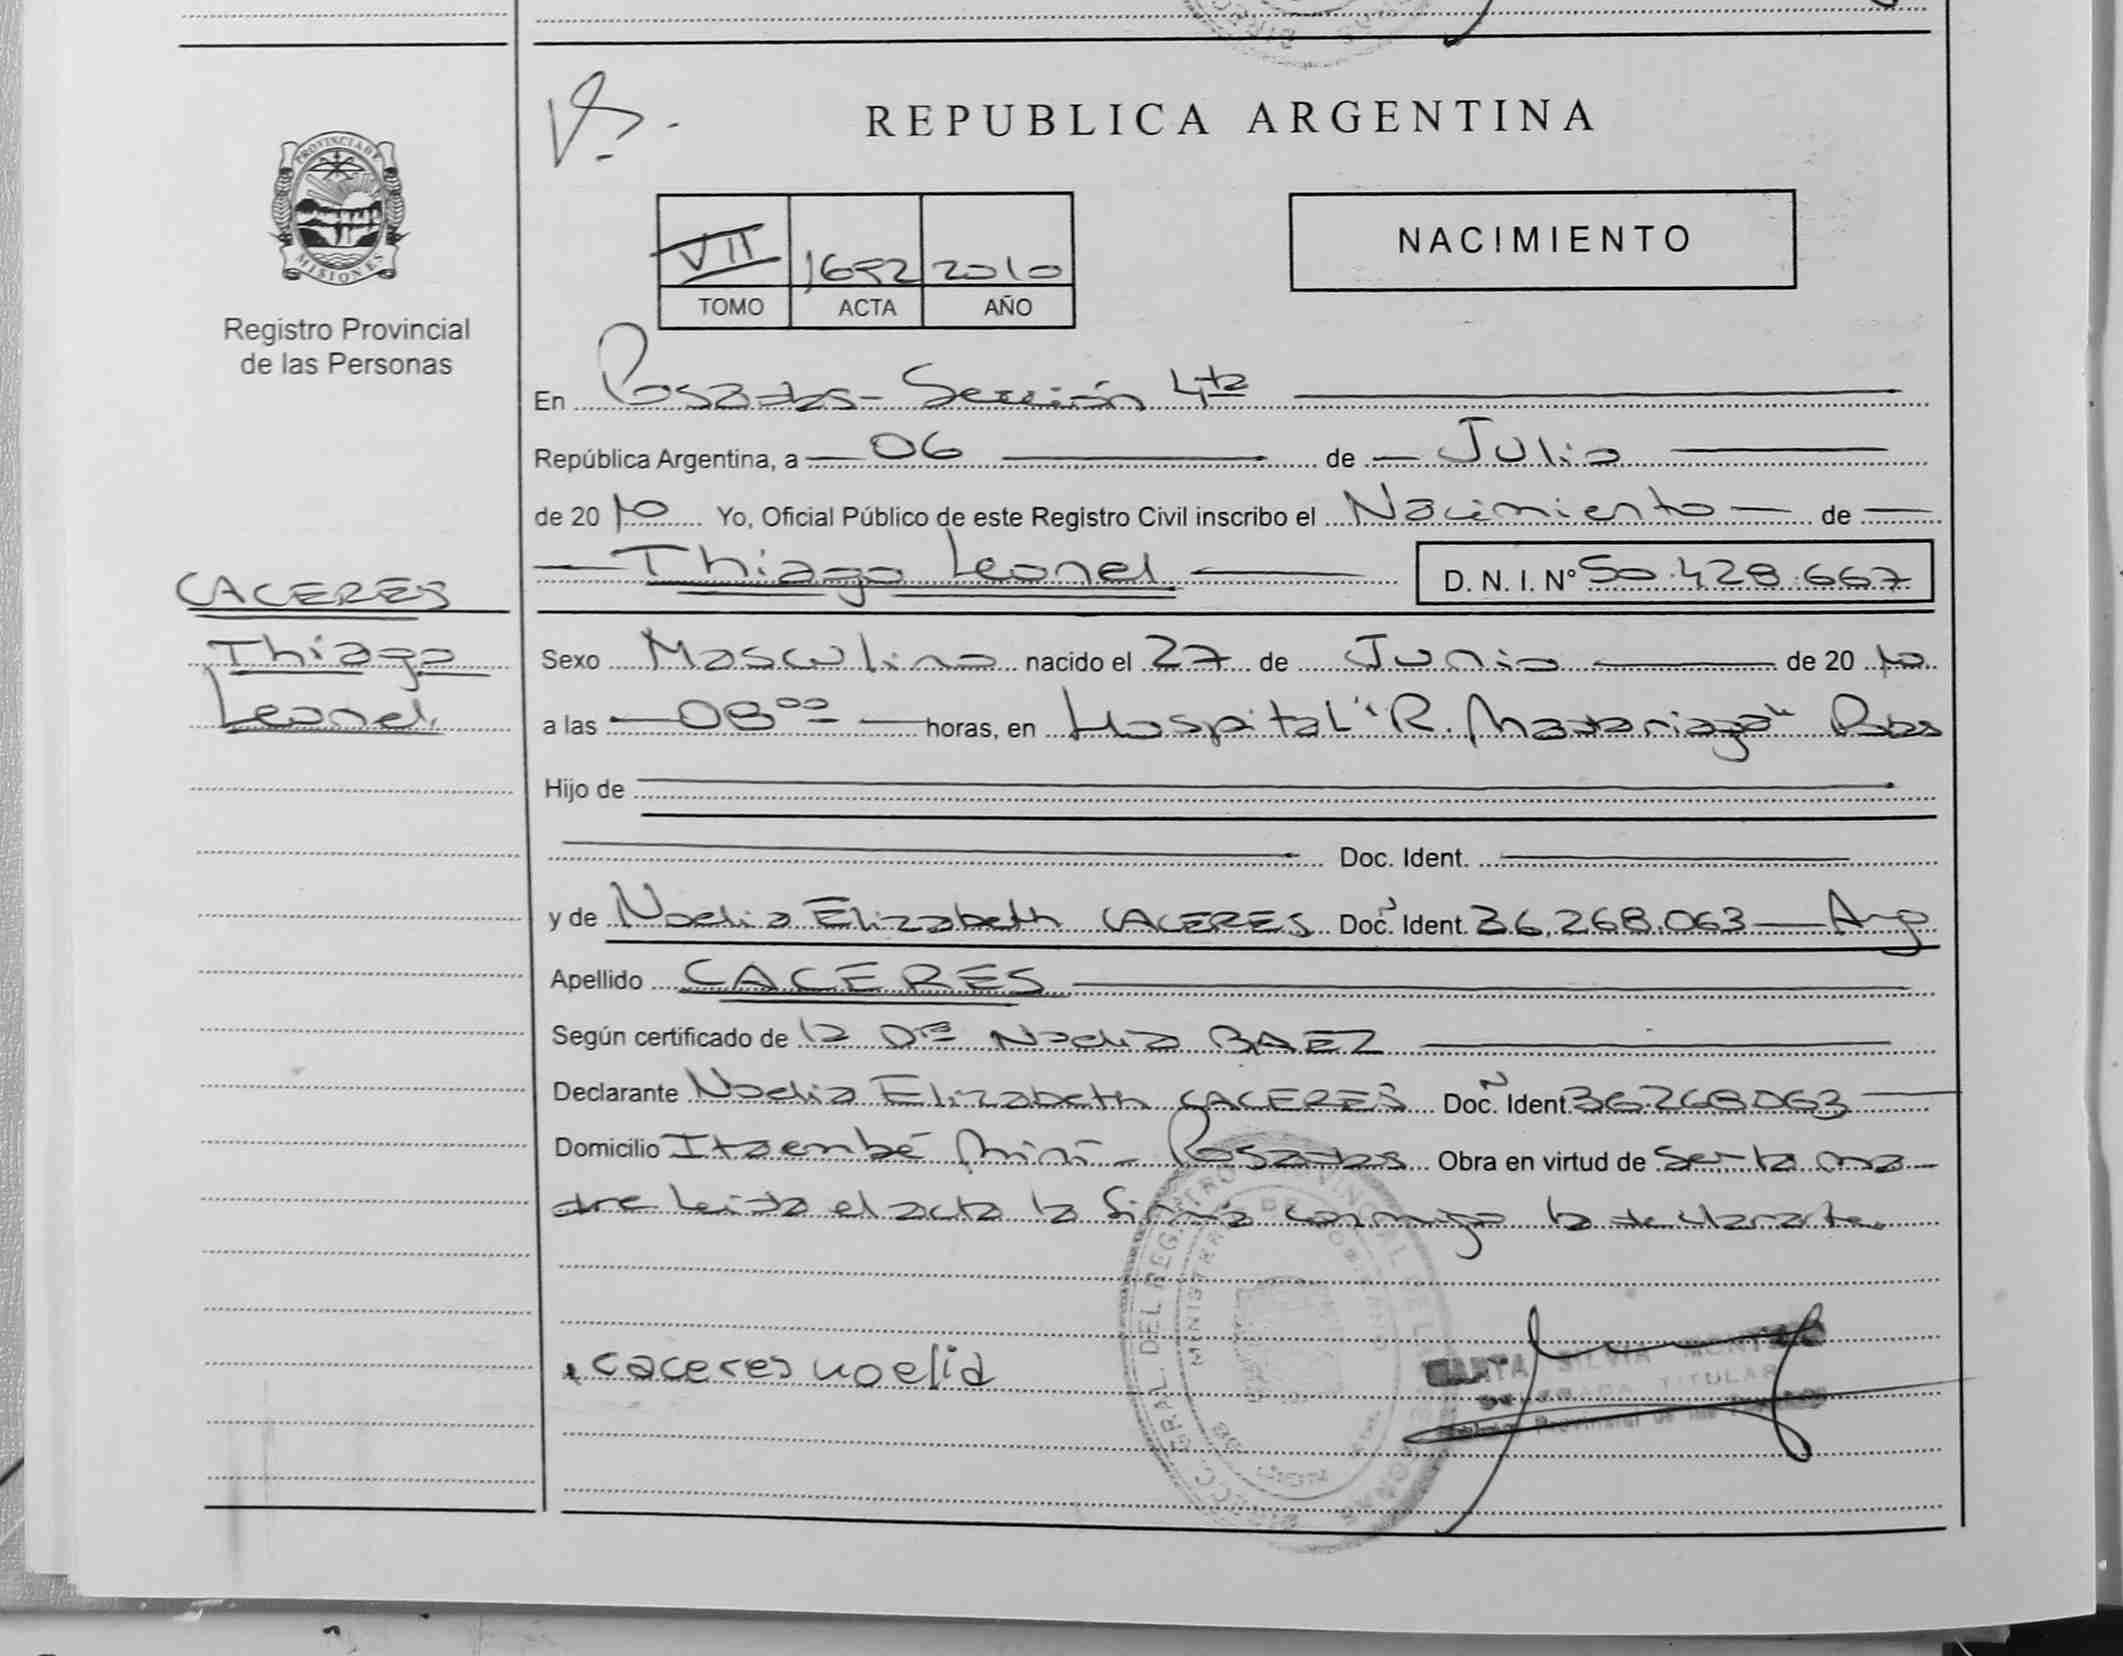 REPUBLICA ARGENTINA
PROVINCIA DE
MISIONES
Registro Provincial
de las Personas
VII 1692 2010
TOMO ACTA AÑO
NACIMIENTO
En Posadas - Sección 4ta
República Argentina, a 06 de Julio
de 2010 Yo, Oficial Público de este Registro Civil inscribo el Nacimiento de
Thiago Leonel D. N. I. Nº 50.428.667
CACERES
Thiago
Leonel.
Sexo Masculino nacido el 27 de Junio de 2010
a las 08 00 horas, en Hospital "R. Madariaga" Pdas
Hijo de
Doc. Ident.
y de Noelia Elizabeth CACERES Doc. Ident. 36.268.063 — Arg
Apellido CACERES
Según certificado de la Dra Nadia BAEZ
Declarante Noelia Elizabeth CACERES Doc. Ident 36.268.063
Domicilio Itaembé Miní - Posadas Obra en virtud de ser la ma-
dre leida el acta la firma conmigo la declarante.
caceres noelia
SILVIA
TITULAR
GRAL. DEL REG
MINISTER